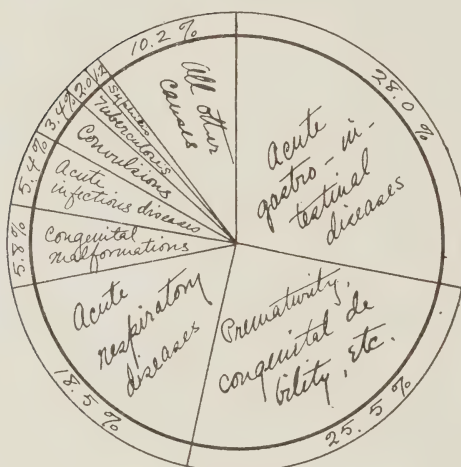 28.0 %
Acute
gastro-in-
testinal
diseases
25.5 %
Prematurity,
congenital de
bility, etc.
18.5 %
Acute
respiratory
diseases
5.8 %
Congenital
malformations
5.4 %
Acute
infectious diseases
3.4 %
Convulsions
2.0
Tuberculosis
1.2
Syphilis
10.2 %
All other
causes